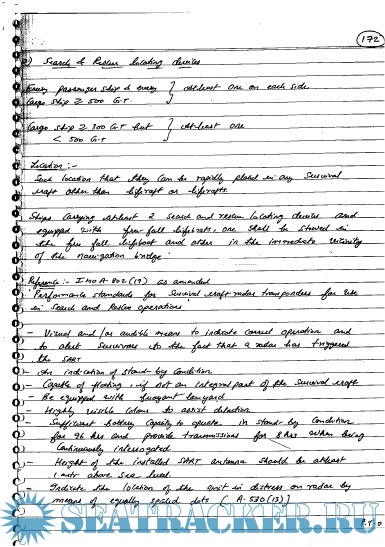 172
Search & Rescue locating devices
Every passenger ship & every } At least one on each side
Cargo ship ≥ 500 G.T
Cargo ship ≥ 300 G.T but } At least one
< 500 G.T
Location :-
Such location that they can be rapidly placed in any survival
craft other than liferaft or liferafts.
Ships carrying atleast 2 search and rescue locating devices and
equipped with free-fall lifeboats, one shall be stowed in
the free fall lifeboat and other in the immediate vicinity
of the navigation bridge
Reference :- IMO A-802(19) as amended
'Performance standards for survival craft radar transponders for use
in search and Rescue operations'
- Visual and/or audible means to indicate correct operation and
to alert survivors to the fact that a radar has triggered
the SART
- An indication of stand-by condition
- Capable of floating, if not an integral part of the survival craft
- Be equipped with buoyant lanyard
- Highly visible colour to assist detection
- Sufficient battery capacity to operate in stand-by condition
for 96 hrs and provide transmissions for 8 hrs when being
continuously interrogated
- Height of the installed SART antenna should be atleast
1 mtr above sea level
- Indicate the location of the unit in distress on radar by
means of equally spaced dots (A.530(13)]
P.T.O
SEATRACKER.RU